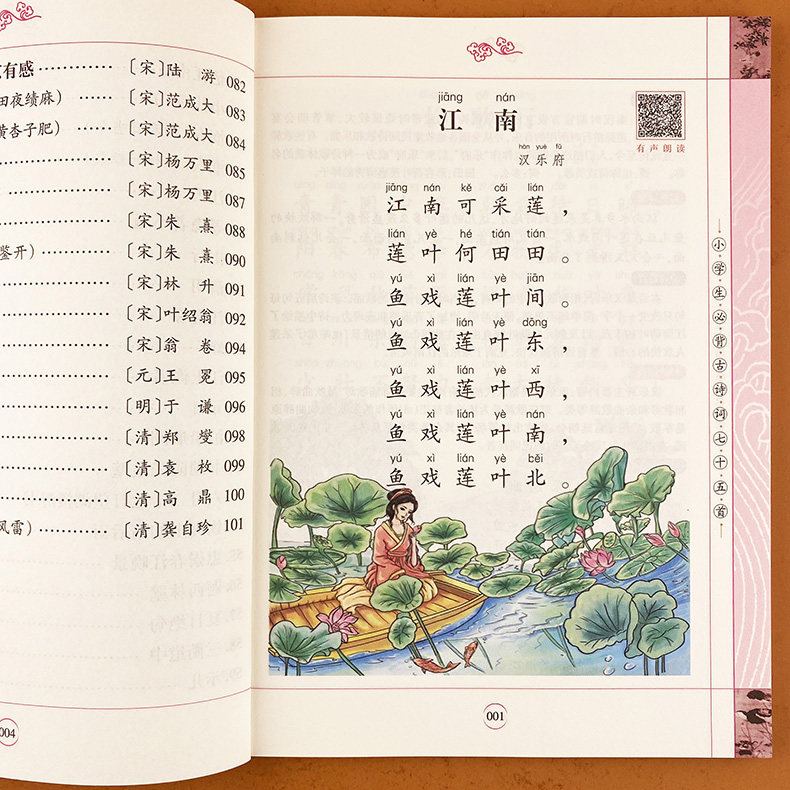 有感 ………… 〔宋〕陆 游 082
田夜绩麻） …… 〔宋〕范成大 083
黄杏子肥） …… 〔宋〕范成大 084
………… 〔宋〕杨万里 085
………… 〔宋〕杨万里 087
………… 〔宋〕朱 熹 088
鉴开） ………… 〔宋〕朱 熹 090
………… 〔宋〕林 升 091
………… 〔宋〕叶绍翁 092
………… 〔宋〕翁 卷 094
………… 〔元〕王 冕 095
………… 〔明〕于 谦 096
………… 〔清〕郑 燮 098
………… 〔清〕袁 枚 099
………… 〔清〕高 鼎 100
风雷） ………… 〔清〕龚自珍 101
004
jiāng nán
江 南
hàn yuè fǔ
汉 乐 府
有声朗读
jiāng nán kě cǎi lián
江 南 可 采 莲，
lián yè hé tián tián
莲 叶 何 田 田。
yú xì lián yè jiān
鱼 戏 莲 叶 间。
yú xì lián yè dōng
鱼 戏 莲 叶 东，
yú xì lián yè xī
鱼 戏 莲 叶 西，
yú xì lián yè nán
鱼 戏 莲 叶 南，
yú xì lián yè běi
鱼 戏 莲 叶 北。
001
小·学·生·必·背·古·诗·词·七·十·五·首